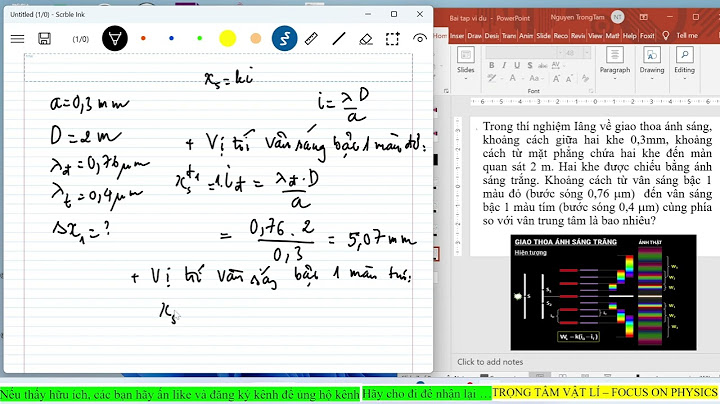 Untitled (1/0) - Scrble Ink
(1/0)
x_s = ki
a = 0,3 mm
i = λD/a
D = 2 m
+ Vị trí vân sáng bậc 1 màu đỏ:
λ_đ = 0,76 μm
x_s^đ1 = 1.i_đ = λ_đ.D/a
λ_t = 0,4 μm
Δx_1 = ?
= 0,76.2/0,3 = 5,07 mm
+ Vị trí vân sáng bậc 1 màu tím:
x_s
Bai tap vi du - PowerPoint
Nguyen TrongTam
NT
Hom Inser Draw Desi Trans Anim Slide Reco Revie View Help Foxit
Tell me
Slides
Paragraph
Drawing
Editing
Font
Trong thí nghiệm Iâng về giao thoa ánh sáng,
khoảng cách giữa hai khe 0,3mm, khoảng
cách từ mặt phẳng chứa hai khe đến màn
quan sát 2 m. Hai khe được chiếu bằng ánh
sáng trắng. Khoảng cách từ vân sáng bậc 1
màu đỏ (bước sóng 0,76 μm) đến vân sáng
bậc 1 màu tím (bước sóng 0,4 μm) cùng phía
so với vân trung tâm là bao nhiêu?
GIAO THOA ÁNH SÁNG TRẮNG
ẢNH THẬT
Hiện tượng
S
S₁
S₂
Click to add notes
Nếu thấy hữu ích, các bạn hãy ấn like và đăng ký kênh để ủng hộ kênh
Hãy cho đi để nhận lại …
TRỌNG TÂM VẬT LÍ – FOCUS ON PHYSICS